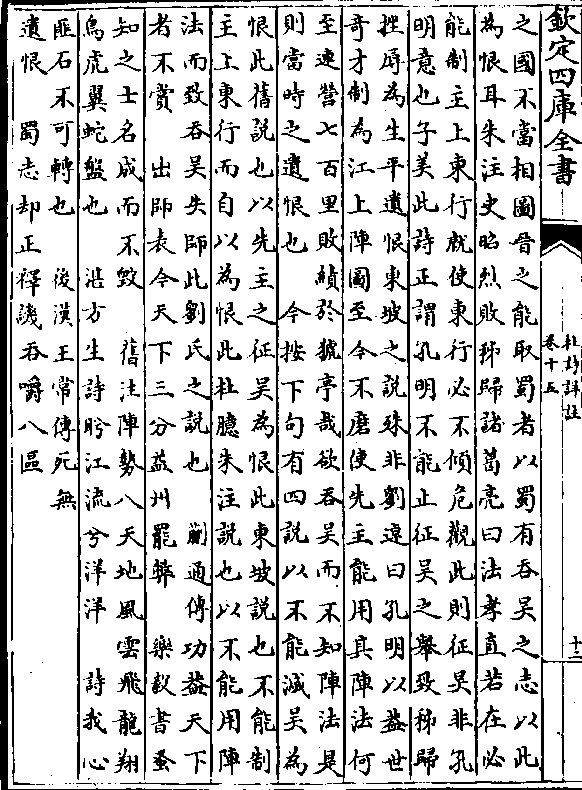 欽定四庫全書
杜詩詳註
卷十五
十二
之國不當相圖晉之能取蜀者以蜀有吞吳之志以此
為恨耳朱注史昭烈敗秭歸諸葛亮曰法孝直若在必
能制主上東行就使東行必不傾危觀此則征吳非孔
明意也子美此詩正謂孔明不能止征吳之舉致秭歸
挫辱為生平遺恨東坡之說殊非劉逴曰孔明以葢世
奇才制為江上陣圖至今不磨使先主能用其陣法何
至連營七百里敗績於猇亭哉欲吞吳而不知陣法是
則當時之遺恨也 今按下句有四說以不能滅吳為
恨此舊說也以先主之征吳為恨此東坡說也不能制
主上東行而自以為恨此杜臆朱注說也以不能用陣
法而致吞吳失師此劉氏之說也 蒯通傳功葢天下
者不賞 出師表今天下三分益州罷弊 樂毅書蚤
知之士名成而不毀 舊注陣勢八天地風雲飛龍翔
鳥虎翼蛇盤也 湛方生詩盻江流兮洋洋 詩我心
匪石不可轉也 後漢王常傳死無
遺恨 蜀志郤正釋譏吞嚼八區